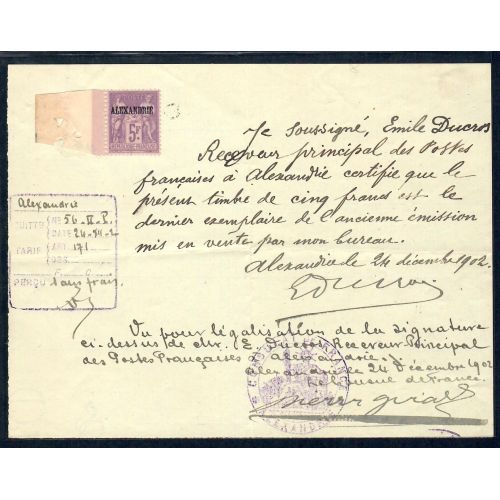 ALEXANDRIE
5F
Je soussigné, Emile Ducros
Receveur principal des Postes
françaises à Alexandrie certifie que le
présent timbre de cinq francs est le
dernier exemplaire de l'ancienne émission
mis en vente par mon bureau.
Alexandrie le 24 décembre 1902.
EDucros
Alexandrie
QUITTCE Nº 56-II-P.
DATE 24-XII-2
TARIF ART. 171
FRS.
PERÇU sans frais.
Vu pour légalisation de la signature
ci-dessus de Mr. E. Ducros Receveur Principal
des Postes Françaises Alexandrie.
Alexandrie le 24 Décembre 1902
Le Consul de France.